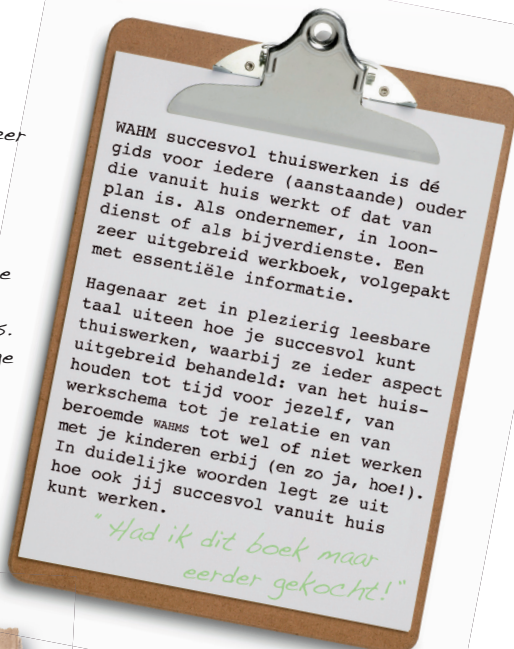 eer
WAHM succesvol thuiswerken is dé
gids voor iedere (aanstaande) ouder
die vanuit huis werkt of dat van
plan is. Als ondernemer, in loon-
dienst of als bijverdienste. Een
zeer uitgebreid werkboek, volgepakt
met essentiële informatie.
e
Hagenaar zet in plezierig leesbare
taal uiteen hoe je succesvol kunt
s.
thuiswerken, waarbij ze ieder aspect
ge
uitgebreid behandeld: van het huis-
houden tot tijd voor jezelf, van
werkschema tot je relatie en van
beroemde WAHMS tot wel of niet werken
met je kinderen erbij (en zo ja, hoe!).
In duidelijke woorden legt ze uit
hoe ook jij succesvol vanuit huis
kunt werken.
"Had ik dit boek maar
eerder gekocht!"